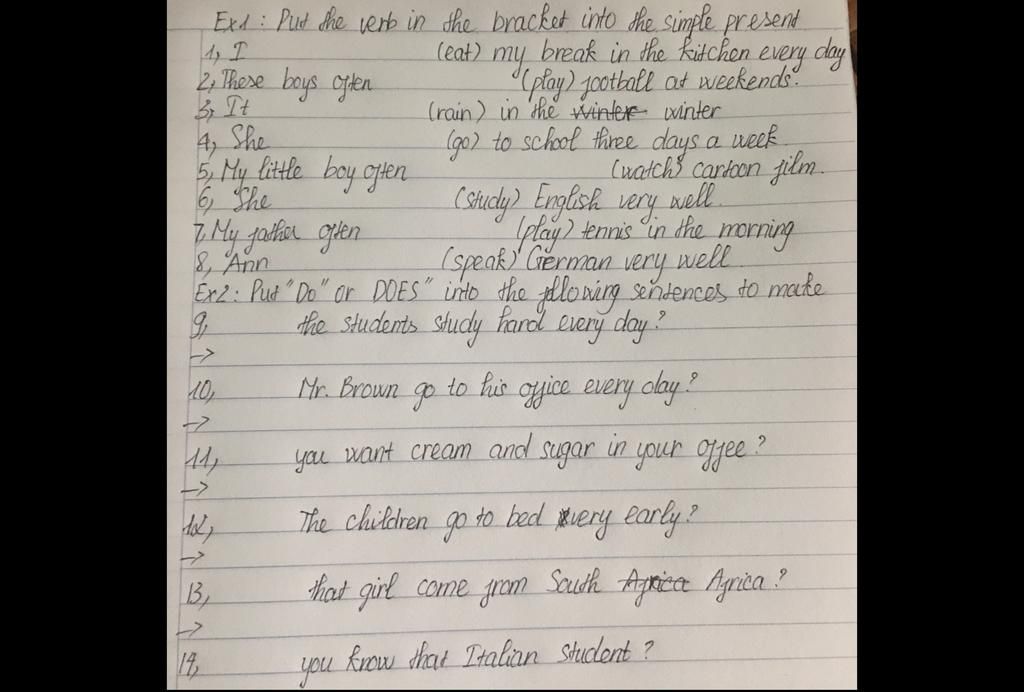 Ex1: Put the verb in the bracket into the simple present
1, I (eat) my break in the kitchen every day
2, These boys often (play) football at weekends.
3, It (rain) in the winter winter
4, She (go) to school three days a week.
5, My little boy often (watch) cartoon film.
6, She (study) English very well.
7, My father often (play) tennis in the morning
8, Ann (speak) German very well.
Ex2: Put "Do" or DOES" into the following sentences to make
9, the students study hard every day?
→
10, Mr. Brown go to his office every day?
→
11, you want cream and sugar in your offee?
→
12, The children go to bed very early?
→
13, that girl come from South Africa Africa?
→
14, you know that Italian student?